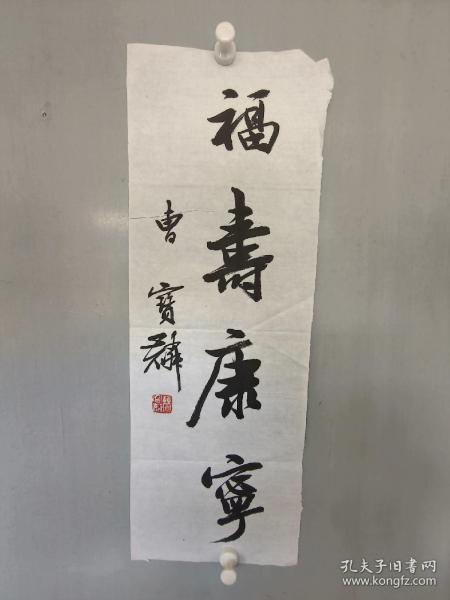 福壽康寧
曹寶麟
孔夫子旧书网
www.kongfz.com